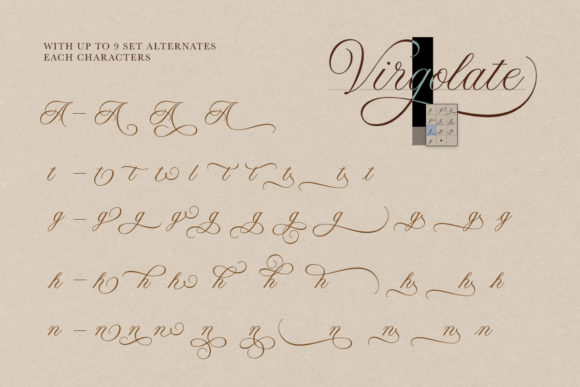 WITH UP TO 9 SET ALTERNATES
EACH CHARACTERS
Virgolate
A – A A A
t – t t t t t t t t t
g – g g g g g g g g g g
h – h h h h h h h h h
n – n n n n n n n n n